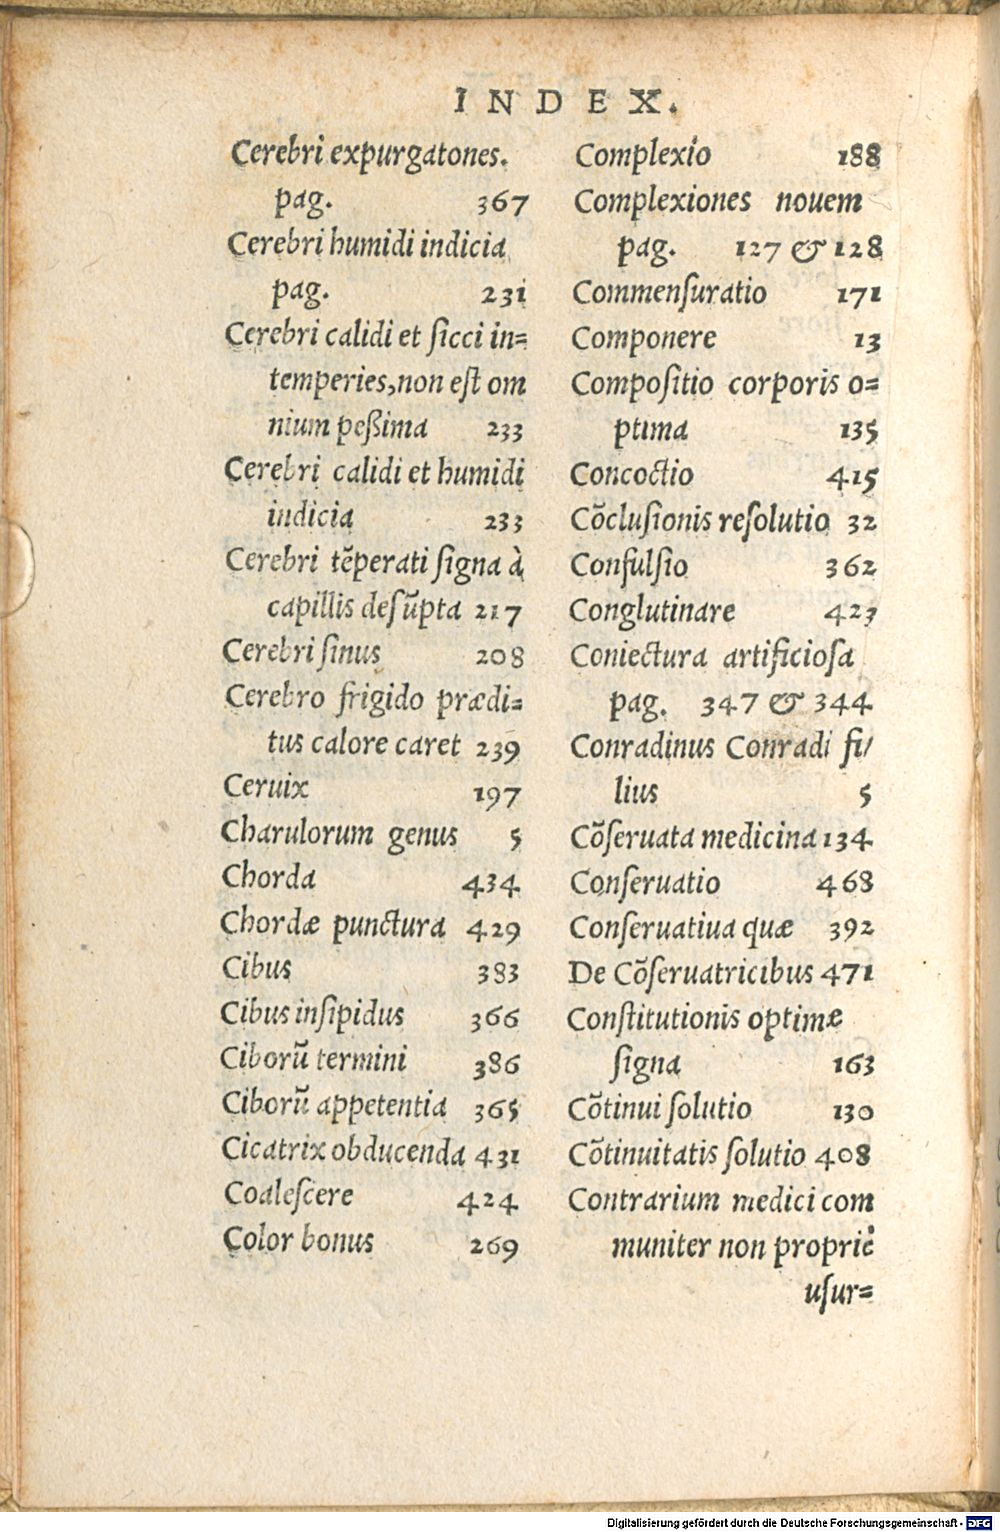 INDEX.
Cerebri expurgatones.
pag. 367
Cerebri humidi indicia
pag. 231
Cerebri calidi et ſicci in=
temperies,non eſt om
nium peßima 233
Cerebri calidi et humidi
indicia 233
Cerebri tẽperati ſigna à
capillis deſũpta 217
Cerebri ſinus 208
Cerebro frigido prædi=
tus calore caret 239
Ceruix 197
Charulorum genus 5
Chorda 434
Chordæ punctura 429
Cibus 383
Cibus inſipidus 366
Ciborũ termini 386
Ciborũ appetentia 365
Cicatrix obducenda 431
Coaleſcere 424
Color bonus 269
Complexio 188
Complexiones nouem
pag. 127 & 128
Commenſuratio 171
Componere 13
Compoſitio corporis o=
ptima 135
Concoctio 415
Cõcluſionis reſolutio 32
Confulſio 362
Conglutinare 423
Coniectura artificioſa
pag. 347 & 344
Conradinus Conradi fi/
lius 5
Cõſeruata medicina 134
Conſeruatio 468
Conſeruatiua quæ 392
De Cõſeruatricibus 471
Conſtitutionis optimæ
ſigna 163
Cõtinui ſolutio 130
Cõtinuitatis ſolutio 408
Contrarium medici com
muniter non propriè
uſur=
Digitalisierung gefördert durch die Deutsche Forschungsgemeinschaft - DFG